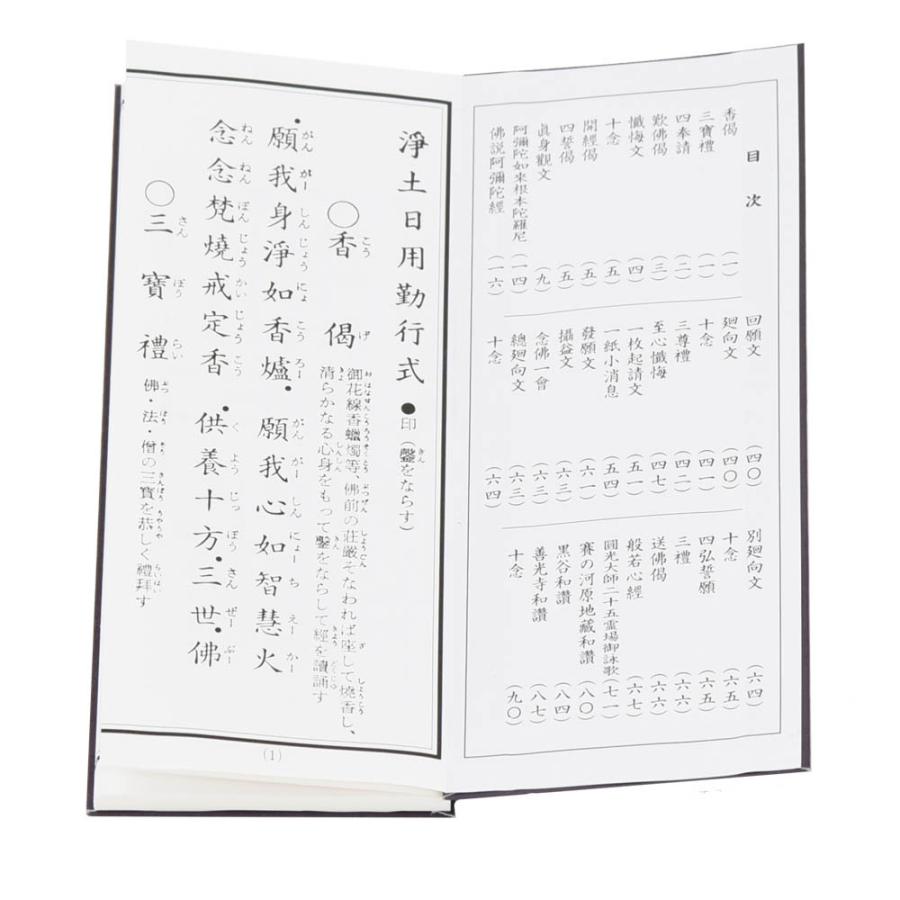 目次
香偈（一）
三寶禮（一）
四奉請（二）
歎佛偈（三）
懺悔文（四）
十念（五）
開經偈（五）
四誓偈（五）
眞身觀文（九）
阿彌陀如来根本陀羅尼（一四）
佛説阿彌陀經（一六）
回願文（四〇）
廻向文（四〇）
十念（四一）
三尊禮（四二）
至心懺悔（四七）
一枚起請文（五一）
一紙小消息（五四）
發願文（六一）
攝益文（六三）
念佛一會（六三）
總廻向文（六三）
十念（六四）
別廻向文（六四）
十念（六五）
四弘誓願（六五）
三禮（六六）
送佛偈（六六）
般若心經（六七）
圓光大師二十五霊場御詠歌（七一）
賽の河原地藏和讚（八〇）
黒谷和讚（八四）
善光寺和讚（八七）
十念（九〇）
淨土日用勤行式 ●印（鏧をならす）
○香偈 御花線香蠟燭等、佛前の莊嚴そなわれば座して燒香し、
清らかなる心身をもって鏧をならして經を讀誦す
願我身淨如香爐・願我心如智慧火
念念梵燒戒定香・供養十方・三世・佛
○三寶禮 佛・法・僧の三寶を恭しく禮拜す
(1)